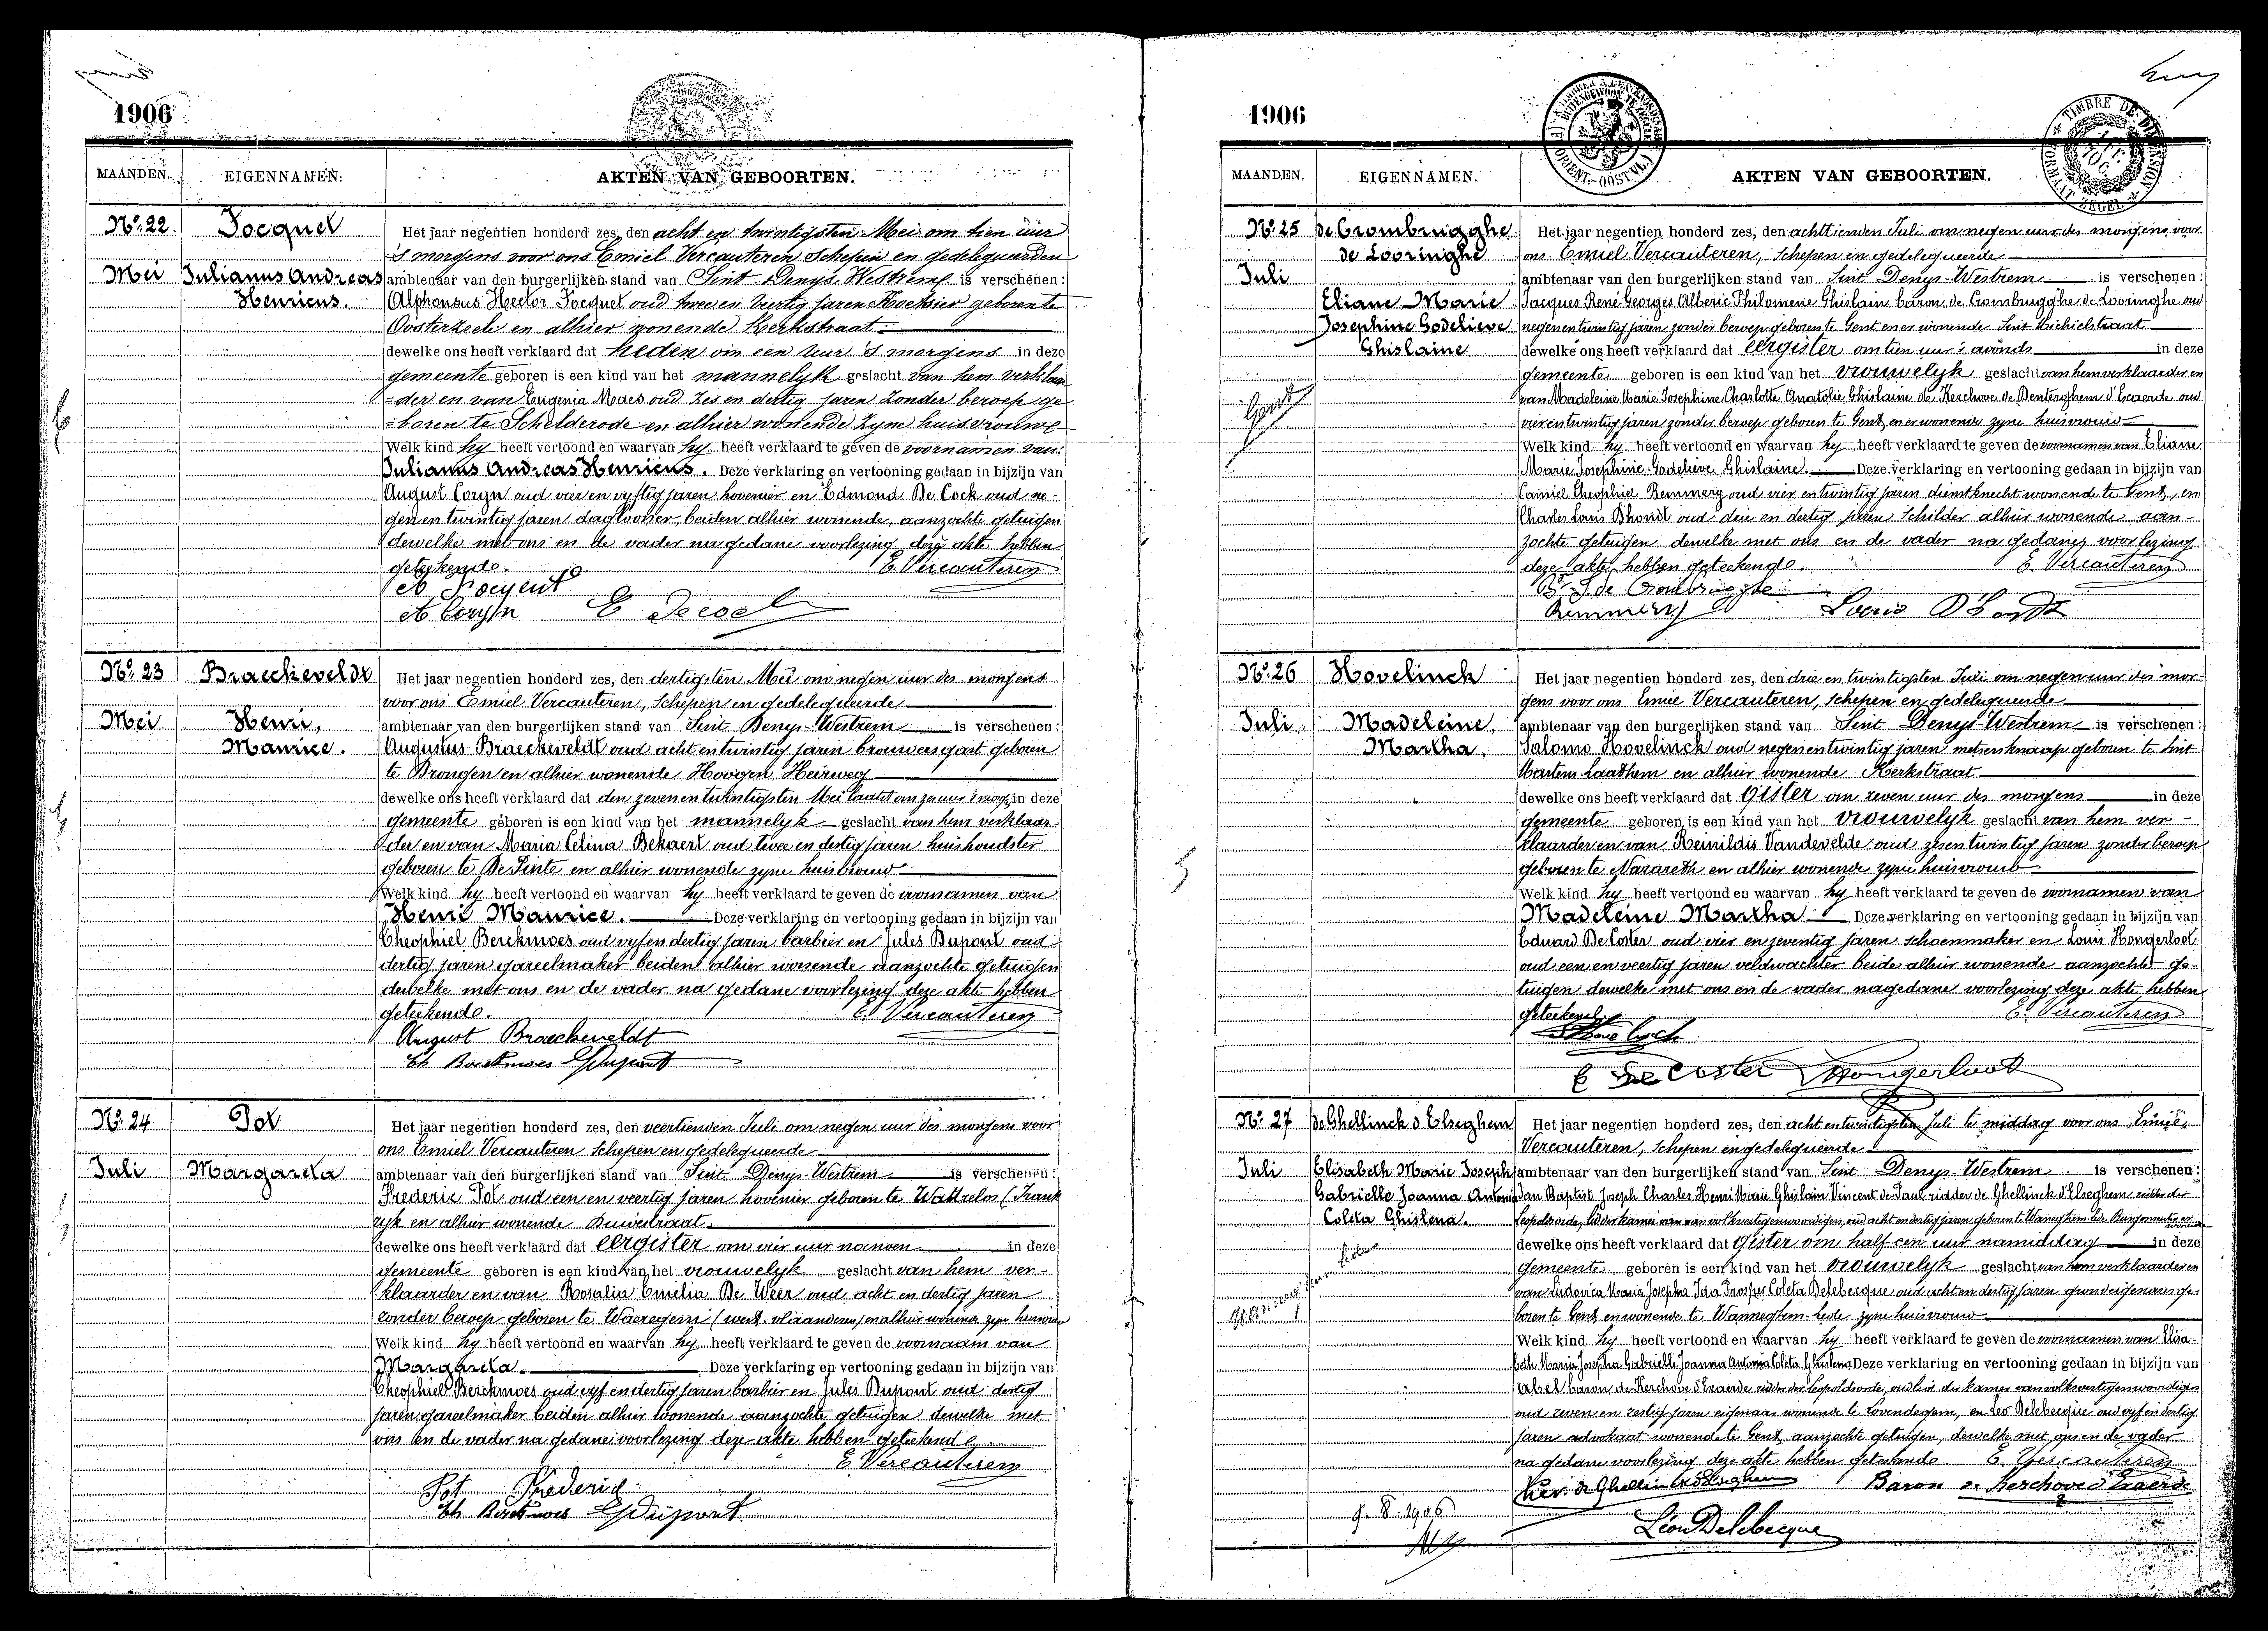 1906
MAANDEN.
EIGENNAMEN.
AKTEN VAN GEBOORTEN.
No. 22.
Mei
Julianus Andreas
Henricus.
Het jaar negentien honderd zes, den acht en twintigsten Mei om tien uur
's morgens voor ons Emiel Vercauteren Schepen en gedelegueerden
ambtenaar van den burgerlijken stand van Sint-Denys-Westrem is verschenen:
Alphonsus Hector oud twee en veertig jaren geboren te
Oosterzeele en alhier wonende Kerkstraat
dewelke ons heeft verklaard dat heden om een uur 's morgens in deze
gemeente geboren is een kind van het mannelyk geslacht van hem verklaar
=der en van Eugenia Maes oud zes en dertig jaren zonder beroep ge
=boren te Schelderode en alhier wonende zyne huisvrouwe
Welk kind hy heeft vertoond en waarvan hy heeft verklaard te geven de voornamen van:
Julianus Andreas Henricus. Deze verklaring en vertooning gedaan in bijzijn van
August Coryn oud vier en vyftig jaren hovenier en Edmond De Cock oud ne-
gen en twintig jaren daglooner, beiden alhier wonende, aanzochte getuigen
dewelke met ons en de vader na gedane voorlezing deze akte hebben
geteekend. E. Vercauteren
A Coryn
No. 23
Braeckeveldt
Mei
Henri,
Maurice.
Het jaar negentien honderd zes, den dertigsten Mei om negen uur des morgens
voor ons Emiel Vercauteren, Schepen en gedelegueerde
ambtenaar van den burgerlijken stand van Sint Denys-Westrem is verschenen:
Augustus Braeckeveldt oud acht en twintig jaren brouwersgast geboren
te Drongen en alhier wonende Hoogen Heirweg
dewelke ons heeft verklaard dat den zeven en twintigsten Mei laatst om uur 's morgs in deze
gemeente geboren is een kind van het mannelyk geslacht van hem verklaar-
der en van Maria Celina Bekaert oud twee en dertig jaren huishoudster
geboren te De Pinte en alhier wonende zyne huisvrouw
Welk kind hy heeft vertoond en waarvan hy heeft verklaard te geven de voornamen van
Henri Maurice. Deze verklaring en vertooning gedaan in bijzijn van
Theophiel Berckmoes oud vyf en dertig jaren barbier en Jules Dupont oud
dertig jaren gareelmaker beiden alhier wonende aanzochte getuigen
dewelke met ons en de vader na gedane voorlezing deze akte hebben
geteekend. E. Vercauteren
August Braeckeveldt
Th Berckmoes Dupont
No. 24
Pot
Juli
Margareta
Het jaar negentien honderd zes, den veertienden Juli om negen uur des morgens voor
ons Emiel Vercauteren Schepen en gedelegueerde
ambtenaar van den burgerlijken stand van Sint Denys-Westrem is verschenen:
Frederic Pot oud een en veertig jaren hovenier geboren te Wattrelos (Frank
ryk en alhier wonende
dewelke ons heeft verklaard dat eergister om vier uur nanoen in deze
gemeente geboren is een kind van het vrouwelyk geslacht van hem ver-
klaarder en van Rosalia Emelia De Weer oud acht en dertig jaren
zonder beroep geboren te Waeregem (west vlaanderen) en alhier wonende zyn huisvrouw
Welk kind hy heeft vertoond en waarvan hy heeft verklaard te geven de voornaam van
Margareta. Deze verklaring en vertooning gedaan in bijzijn van
Theophiel Berckmoes oud vyf en dertig jaren barbier en Jules Dupont oud dertig
jaren gareelmaker beiden alhier wonende aanzochte getuigen dewelke met
ons en de vader na gedane voorlezing deze akte hebben geteekend
E. Vercauteren
Pot Frederic
Th Berckmoes Dupont
1906
MAANDEN.
EIGENNAMEN.
AKTEN VAN GEBOORTEN.
TIMBRE DE DIMENSION
FORMAAT ZEGEL
No. 25
de Crombrugghe
de Looringhe
Juli
Eliane Marie
Josephine Godelieve
Ghislaine
Gent
Het jaar negentien honderd zes, den achttienden Juli om negen uur des morgens voor
ons Emiel Vercauteren, Schepen en gedelegueerde
ambtenaar van den burgerlijken stand van Sint Denys-Westrem is verschenen:
Jacques René Georges Alberic Philomene Ghislain baron de Crombrugghe de Looringhe oud
negenentwintig jaren zonder beroep geboren te Gent en er wonende Sint Michielstraat
dewelke ons heeft verklaard dat eergister om tien uur 's avonds in deze
gemeente geboren is een kind van het vrouwelyk geslacht van hem verklaarder en
van Madeleine Marie Josephine Charlotte Anatolie Ghislaine de Kerchove de Denterghem d'Exaerde oud
vier en twintig jaren zonder beroep geboren te Gent en er wonende zyne huisvrouw
Welk kind hy heeft vertoond en waarvan hy heeft verklaard te geven de voornamen van Eliane
Marie Josephine Godelieve Ghislaine. Deze verklaring en vertooning gedaan in bijzijn van
Camiel Theophiel Remmery oud vier en twintig jaren dienstknecht wonende te Gent, en
Charles Louis Dhondt oud drie en dertig jaren Schilder alhier wonende aan-
zochte getuigen dewelke met ons en de vader na gedane voorlezing
deze akte hebben geteekend. E. Vercauteren
Bn J de Crombrugghe
Remmery Louis D'hondt
No. 26
Hovelinck
Juli
Madeleine,
Martha.
Het jaar negentien honderd zes, den drie en twintigsten Juli om negen uur des mor-
gens voor ons Emiel Vercauteren, Schepen en gedelegueerde
ambtenaar van den burgerlijken stand van Sint Denys-Westrem is verschenen:
Salomo Hovelinck oud negen en twintig jaren metsersknaap geboren te Sint
Martens Laathem en alhier wonende Kerkstraat
dewelke ons heeft verklaard dat gister om zeven uur des morgens in deze
gemeente geboren is een kind van het vrouwelyk geslacht van hem ver-
klaarder en van Reinildis Vandevelde oud zesentwintig jaren zonder beroep
geboren te Nazareth en alhier wonende zyne huisvrouw
Welk kind hy heeft vertoond en waarvan hy heeft verklaard te geven de voornamen van
Madeleine Martha Deze verklaring en vertooning gedaan in bijzijn van
Eduard De Coster oud vier en zeventig jaren schoenmaker en Louis Hongerloot
oud een en veertig jaren veldwachter beide alhier wonende aanzochte ge-
tuigen dewelke met ons en de vader na gedane voorlezing deze akte hebben
geteekend. E. Vercauteren
E De Coster Hongerloot
No. 27
de Ghellinck d'Elseghem
Juli
Elisabeth Marie Joseph
Gabrielle Joanna Antonia
Coleta Ghislena.
9.8.1906
Het jaar negentien honderd zes, den acht en twintigsten Juli te middag voor ons Emiel
Vercauteren, Schepen en gedelegueerde
ambtenaar van den burgerlijken stand van Sint Denys-Westrem is verschenen:
Jan Baptist Joseph Charles Henri Marie Ghislain Vincent de Paul ridder de Ghellinck d'Elseghem ridder der
Leopoldsorde, lid der kamer van volksvertegenwoordigers, oud acht en dertig jaren geboren te Wannegem-lede Burgemeester er wonende
dewelke ons heeft verklaard dat gister om half een uur namiddag in deze
gemeente geboren is een kind van het vrouwelyk geslacht van hem verklaarder en
van Ludovica Maria Josepha Ida Prosper Coleta Delebecque oud acht en dertig jaren grondeigenares ge-
boren te Gent en wonende te Wanneghem-lede zyne huisvrouw
Welk kind hy heeft vertoond en waarvan hy heeft verklaard te geven de voornamen van Elisa-
beth Maria Josepha Gabrielle Joanna Antonia Coleta Ghislena Deze verklaring en vertooning gedaan in bijzijn van
Abel baron de Kerchove d'Exaerde ridder der Leopoldsorde, oud lid der kamer van volksvertegenwoordigers
oud zeven en zestig jaren eigenaar wonende te Lovendegem, en Leo Delebecque oud vyf en dertig
jaren advokaat wonende te Gent aanzochte getuigen, dewelke met ons en de vader
na gedane voorlezing deze akte hebben geteekend E. Vercauteren
Baron de Kerchove d'Exaerde
Léon Delebecque